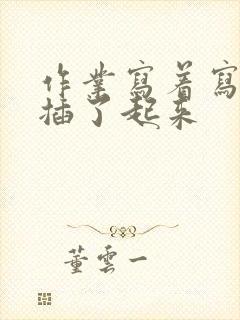 作業寫着寫
插了起来
董雲一